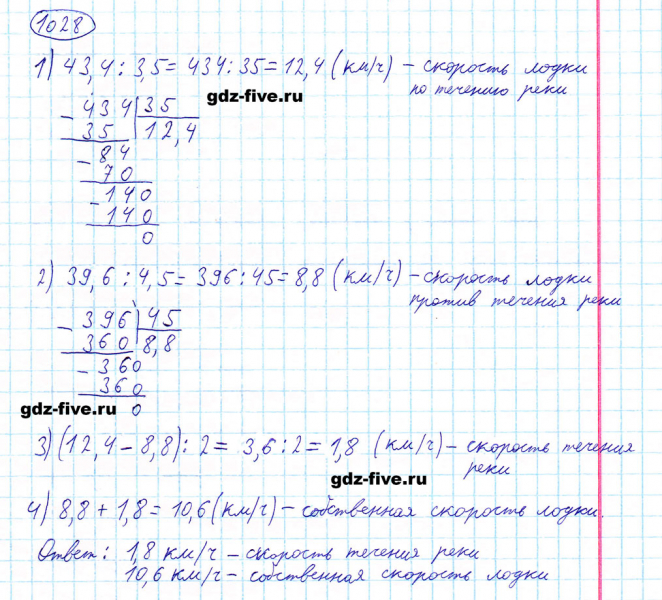 1028
1) 43,4 : 3,5 = 434 : 35 = 12,4 (км/ч) – скорость лодки
по течению реки
gdz-five.ru
– 434 | 35
35 | 12,4
– 84
70
– 140
140
0
2) 39,6 : 4,5 = 396 : 45 = 8,8 (км/ч) – скорость лодки
против течения реки
– 396 | 45
360 | 8,8
– 360
360
gdz-five.ru
0
3) (12,4 – 8,8) : 2 = 3,6 : 2 = 1,8 (км/ч) – скорость течения
реки
gdz-five.ru
4) 8,8 + 1,8 = 10,6 (км/ч) – собственная скорость лодки.
Ответ: 1,8 км/ч – скорость течения реки
10,6 км/ч – собственная скорость лодки